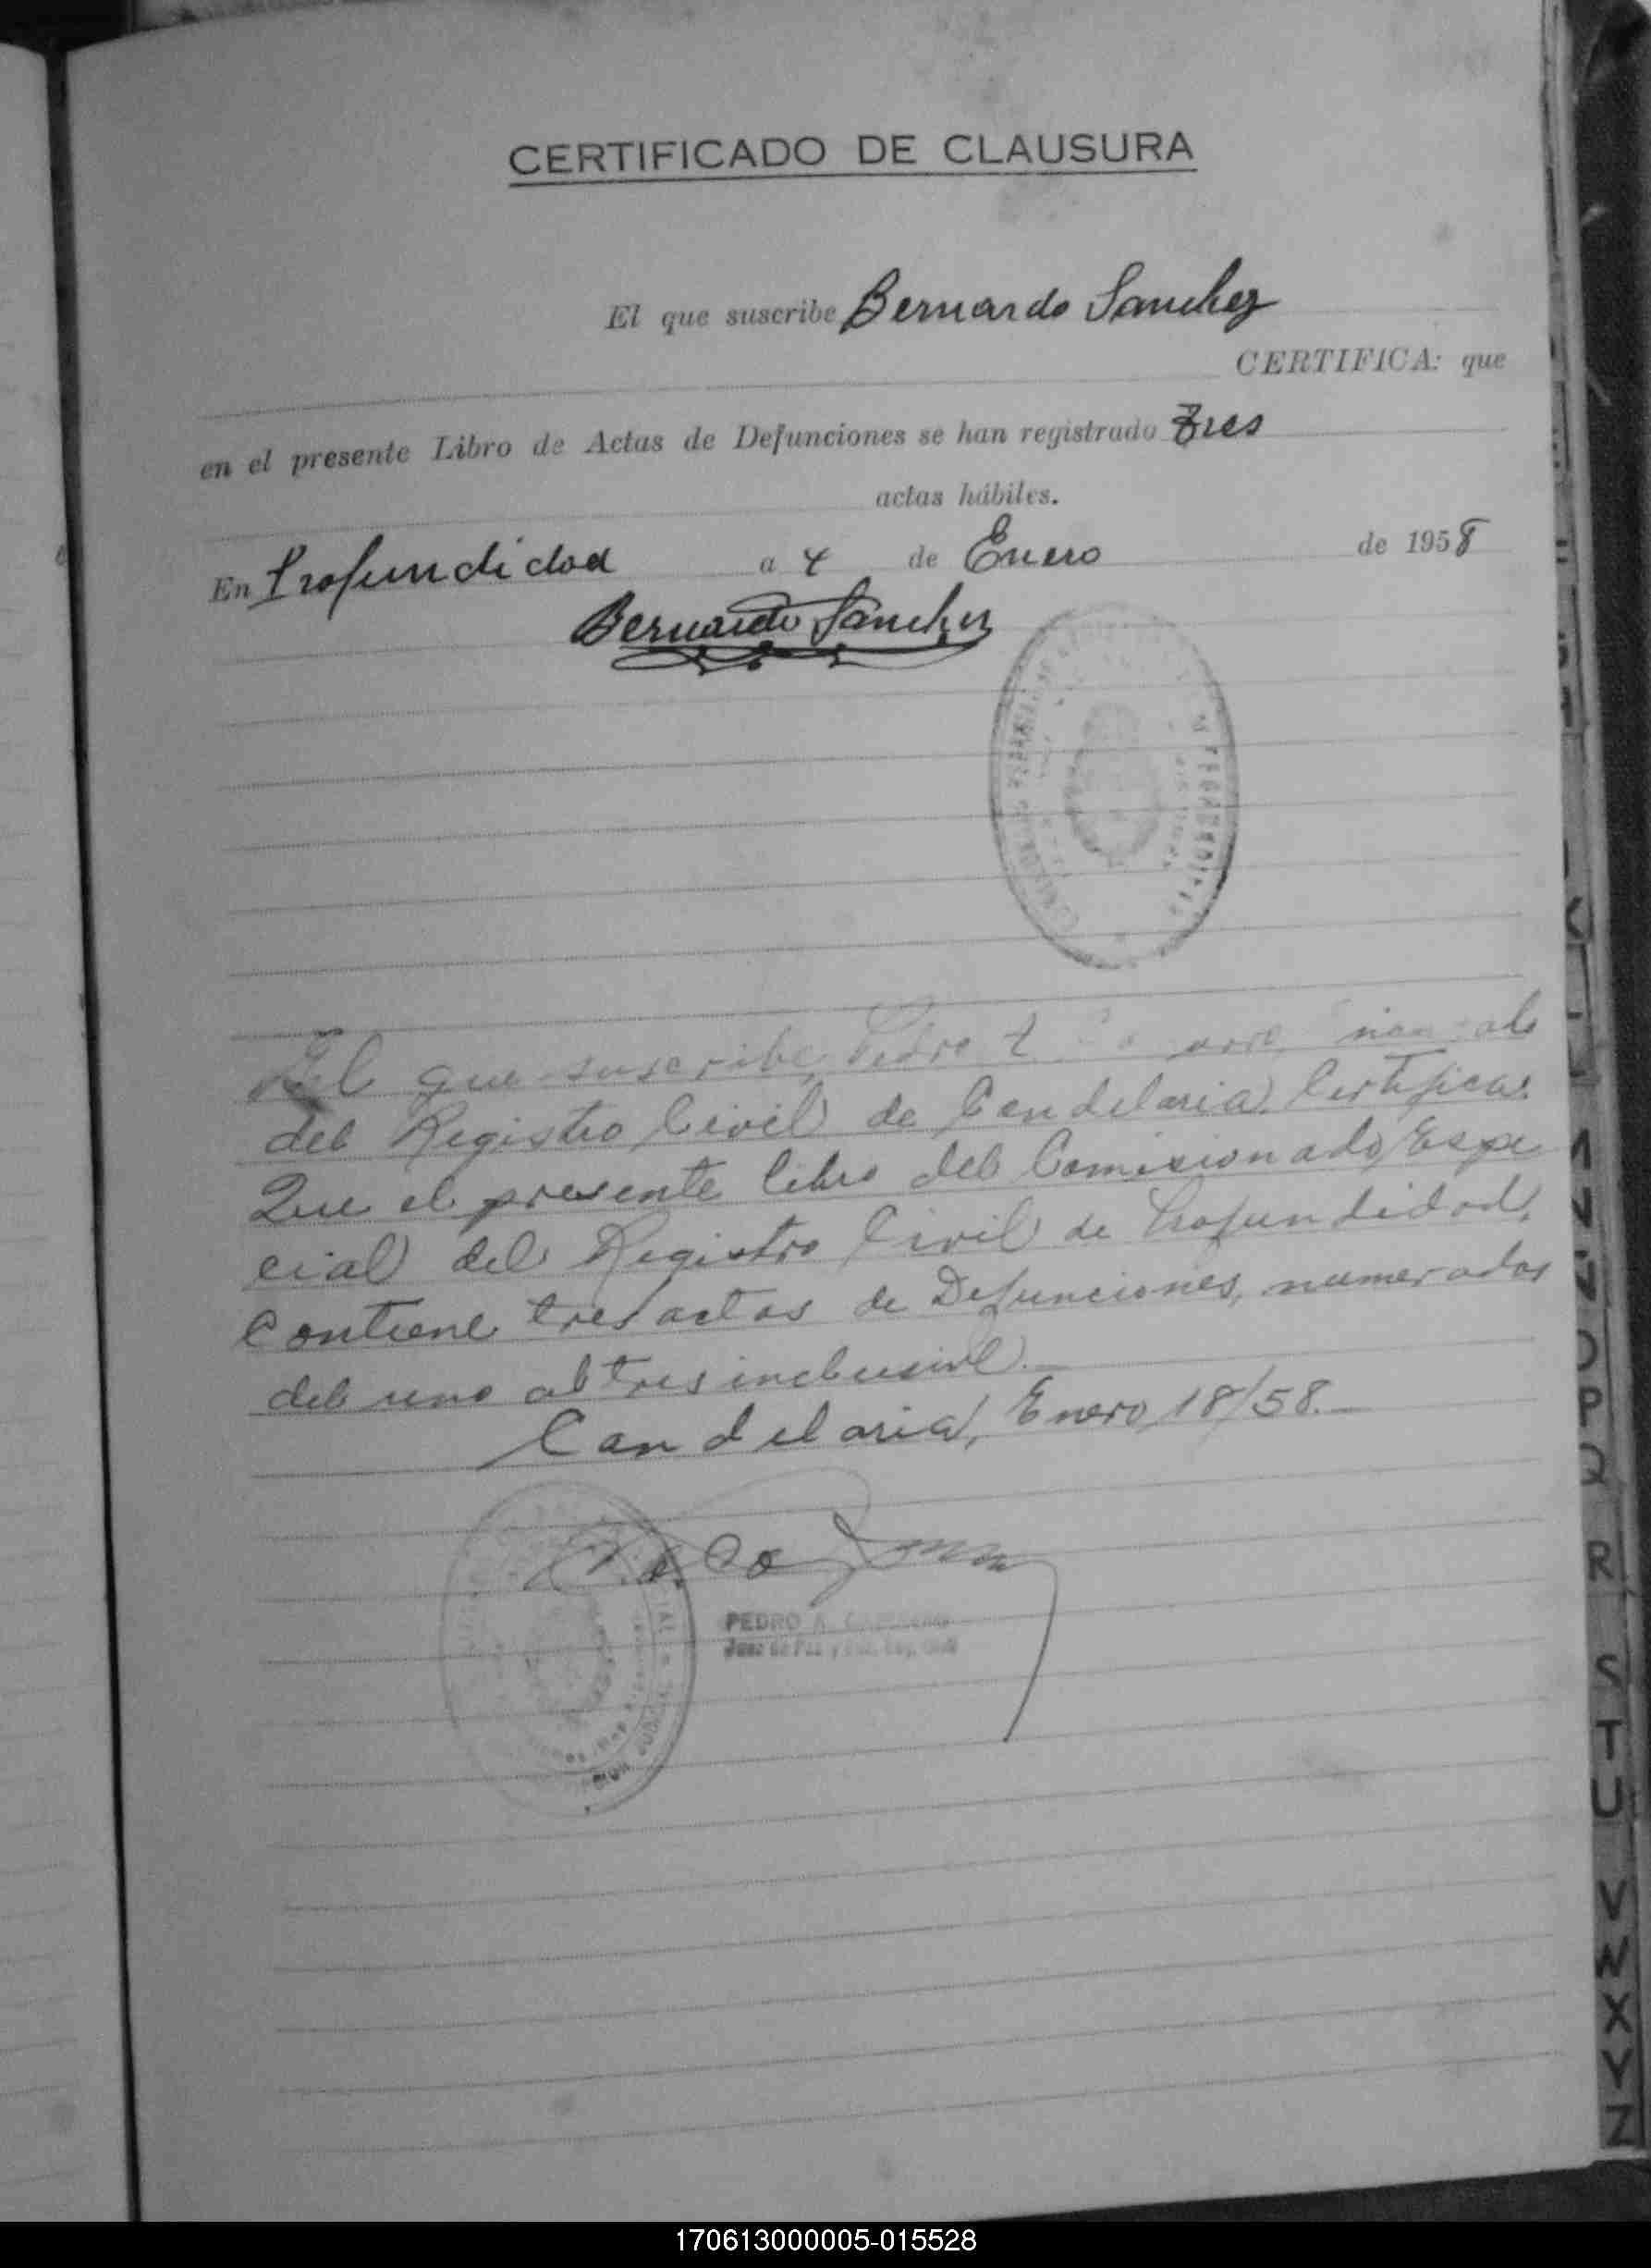 CERTIFICADO DE CLAUSURA
El que suscribe Bernardo Sanchez
CERTIFICA: que
en el presente Libro de Actas de Defunciones se han registrado tres
actas hábiles.
En Profundidad a 4 de Enero de 1958
Bernardo Sánchez
El que suscribe, Pedro
del Registro Civil de Candelaria, Certifica:
Que el presente libro del Comisionado Espe
cial del Registro Civil de Profundidad,
Contiene tres actas de Defunciones, numeradas
del uno al tres inclusive.
Candelaria, Enero 18/58.
PEDRO A.
Juez de Paz y
N
O
P
Q
R
S
T
U
V
W
X
Y
Z
170613000005-015528